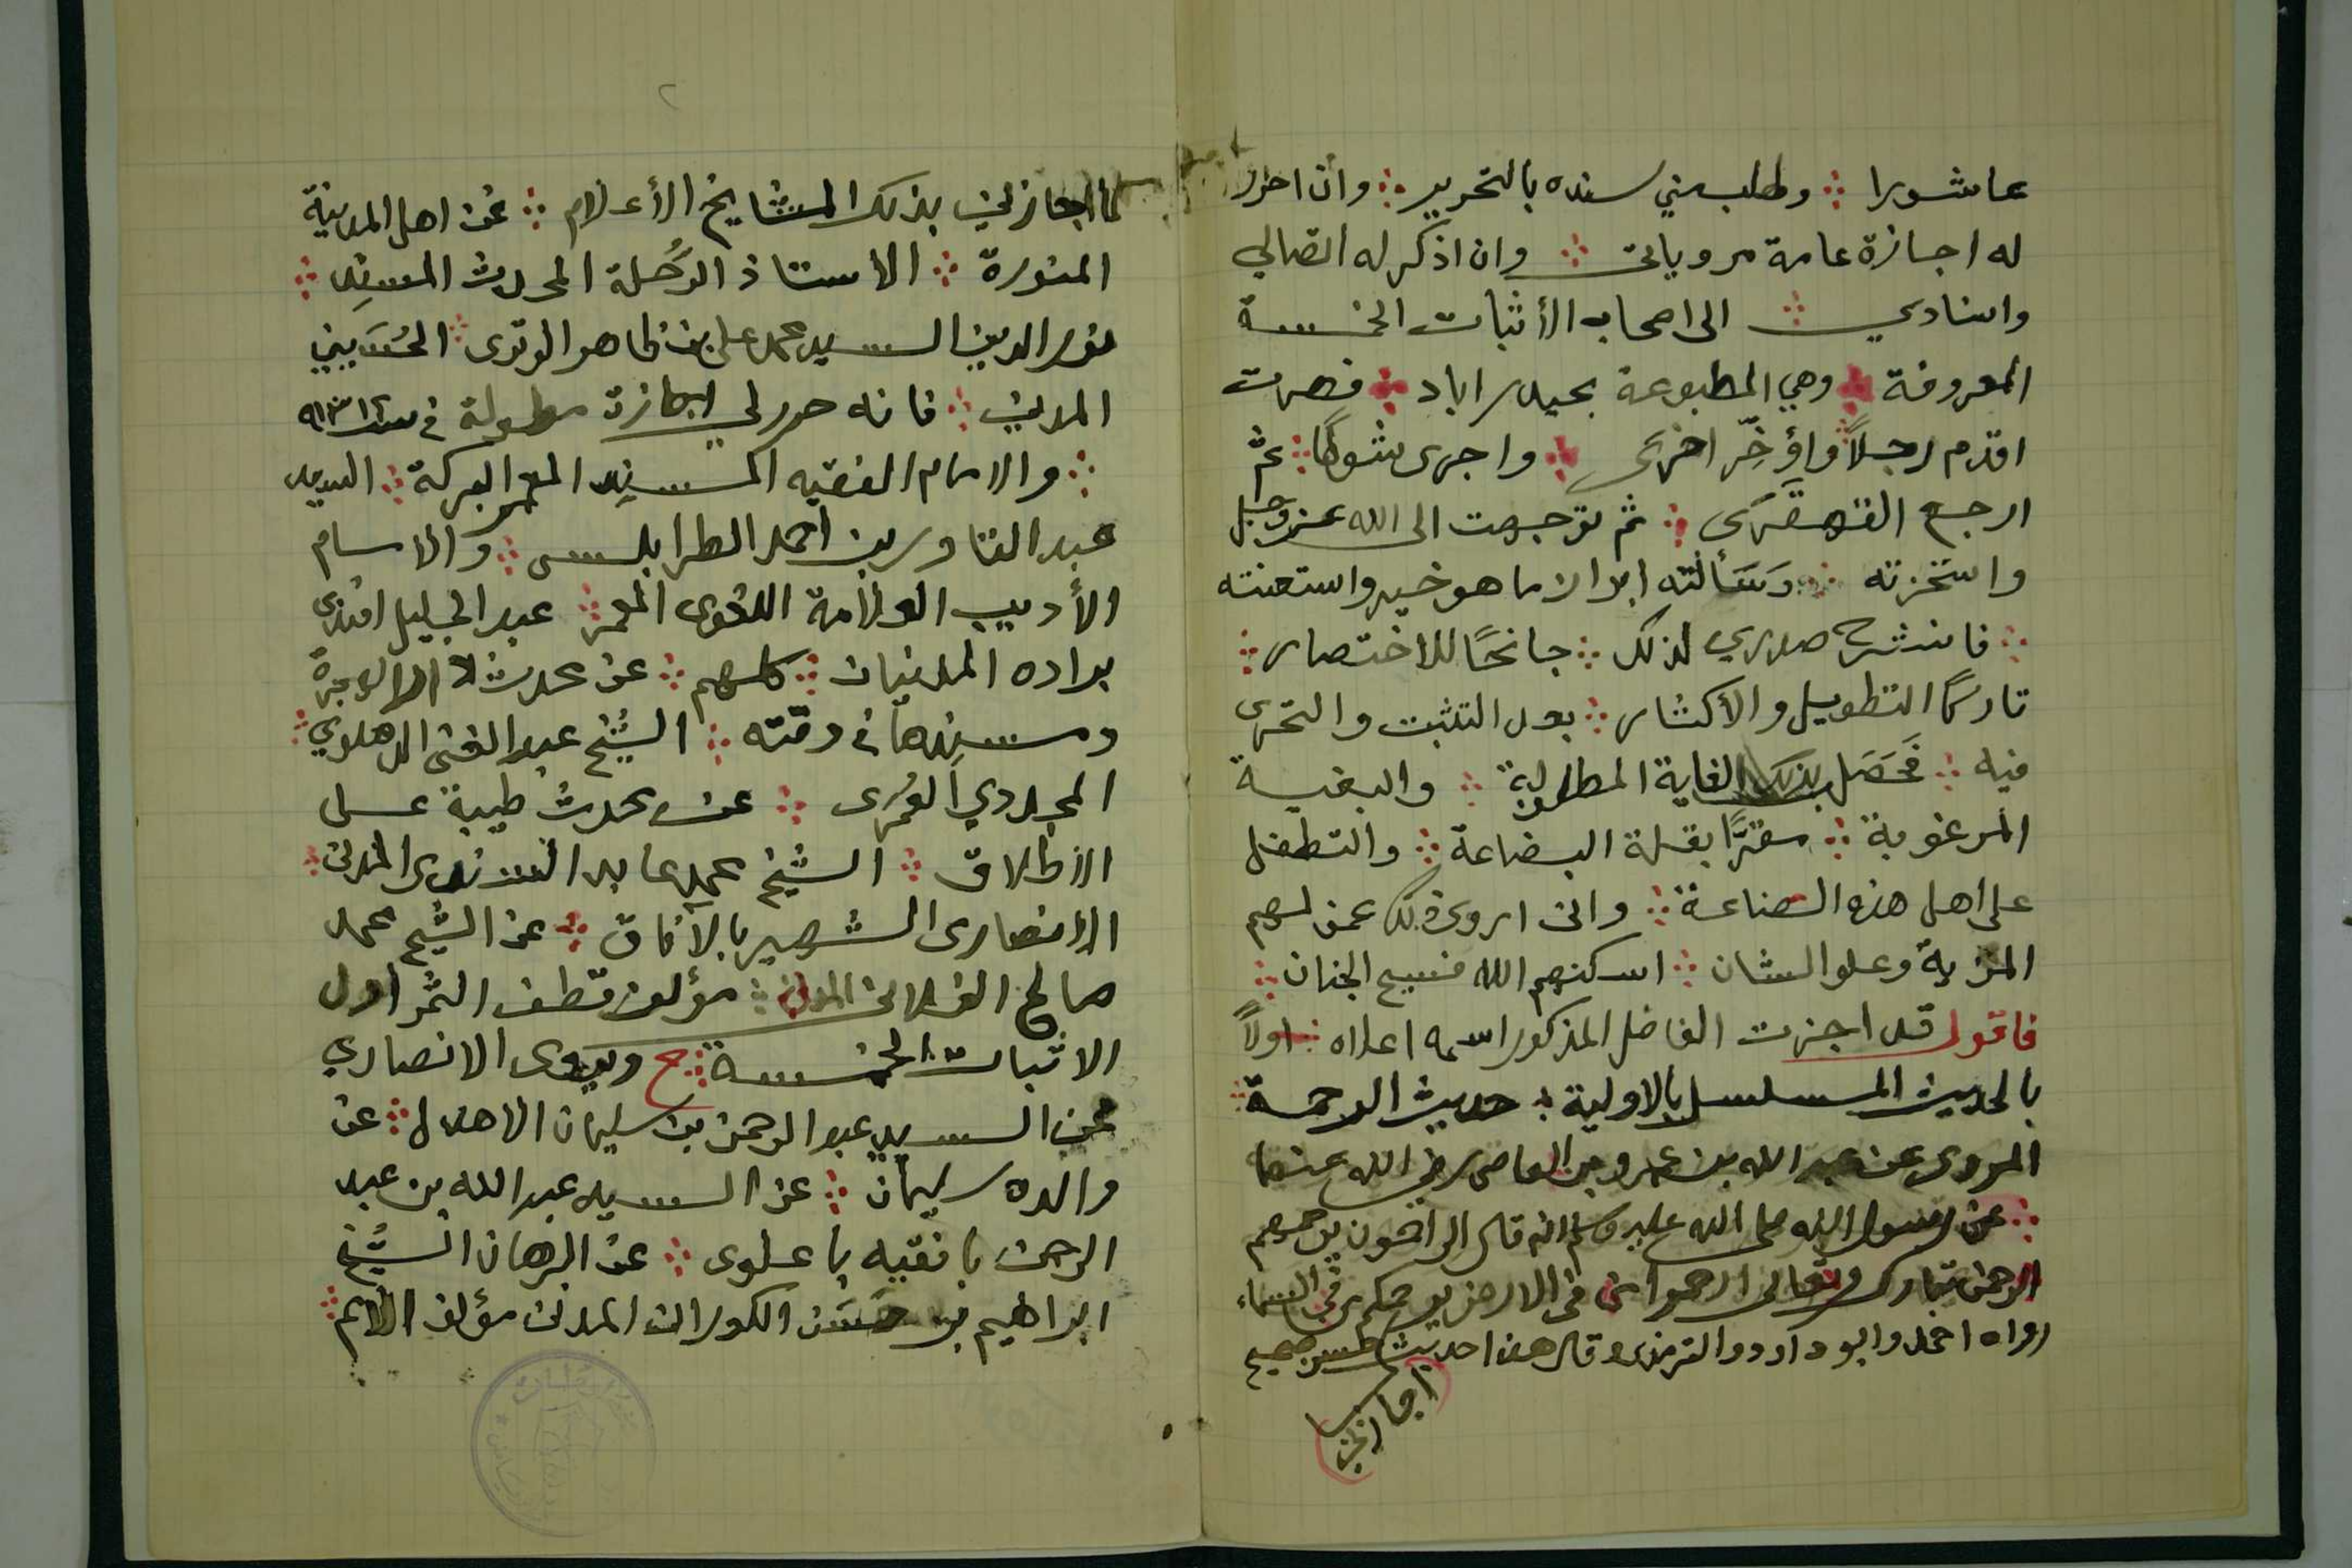 عاشورا ∴ وطلب مني سنده بالتحرير ∴ وان احرر
له اجازة عامة مروياتى ∴ وان اذكر له اتصالي
واسنادي ∴ الى اصحاب الأثبات الخمسة
المعروفة ∴ وهي المطبوعة بحيدراباد ∴ فصرت
اقدم رجلاً واؤخّر اخرى ∴ واجرى شوطًا ∴ ثم
ارجع القهقرى ∴ ثم توجهت الى الله عزوجل
واستخرته ∴ وسَألته ابراز ما هو خير واستعنته
∴ فانشرح صدري لذلك ∴ جانحًا للاختصار ∴
تاركًا التطويل والأكثار ∴ بعد التثبت والتحرى
فيه ∴ فحَصَل بذلك الغاية المطلوبة ∴ والبغية
المرغوبة ∴ مقرًا بقلة البضاعة ∴ والتطفل
على اهل هذه الصناعة ∴ وانى اروى ذلك عمن لهم
المزية وعلو الشان ∴ اسكنهم الله فسيح الجنان ∴
فاقول قد اجزت الفاضل المذكور اسمه اعلاه ∴ اولاً
بالحديث المسلسل بالاولية ∴ حديث الرحمة ∴
المروى عن عبد الله بن عمرو بن العاص رضي الله عنهما
∴ عن رسول الله صلى الله عليه وسلم انه قال الراحمون يرحمهم
الرحمن تبارك وتعالى ارحموا من فى الارض يرحمكم من في السماء
رواه احمد وابو داود والترمذي وقال هذا حديث حسن صحيح
كما اجازني بذلك المشايخ الأعلام ∴ عن اهل المدينة
المنورة ∴ الاستاذ الرُحلة المحدث المسنِد ∴
نور الدين السيد محمد على بن ظاهر الوترى ∴ الحُسَيني
المدني ∴ فانه حرر لي اجازة مطولة في سنة
∴ والامام الفقيه المسنِد المعمر البركة ∴ السيد
عبد القادر بن احمد الطرابلسى ∴ والامام
الأديب العلامة اللغوى المعمر ∴ عبد الجليل افندى
براده المدنيان ∴ كلهم ∴ عن محدث دار الهجرة
ومسنِدها فى وقته ∴ الشيخ عبد الغنى الدهلوي ∴
المجددي العُمرى ∴ عن محدث طيبة على
الاطلاق ∴ الشيخ محمد عابد السندى المدنى ∴
الانصارى الشهير بالآفاق ∴ عن الشيخ محمد
صالح الفلانى المدنى ∴ مؤلف قطف الثمر اول
الاثبات الخمسة ∴ ح ويروى الانصاري
عن السيد عبد الرحمن بن سليمان الاهدل ∴ عن
والده سليمان ∴ عن السيد عبد الله بن عبد
الرحمن بافقيه باعلوى ∴ عن البرهان الشيخ
ابراهيم بن حسَن الكورانى المدنى مؤلف الأمم ∴